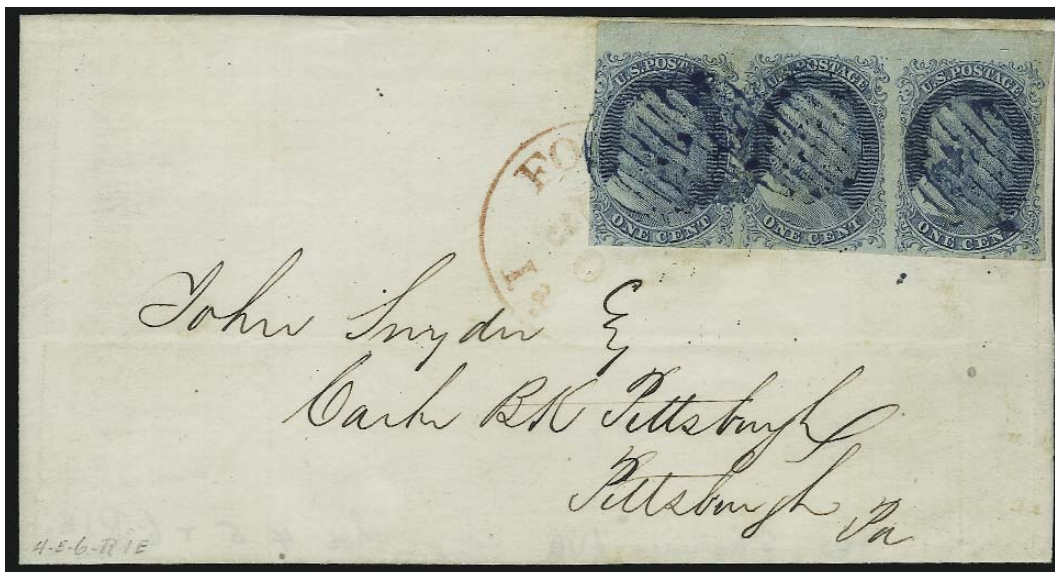 U.S. POSTAGE U.S. POSTAGE U.S. POSTAGE
ONE CENT ONE CENT ONE CENT
FO
John Snyder Esq
Cashr BK Pittsburgh
Pittsburgh
Pa
4-5-6-R1E